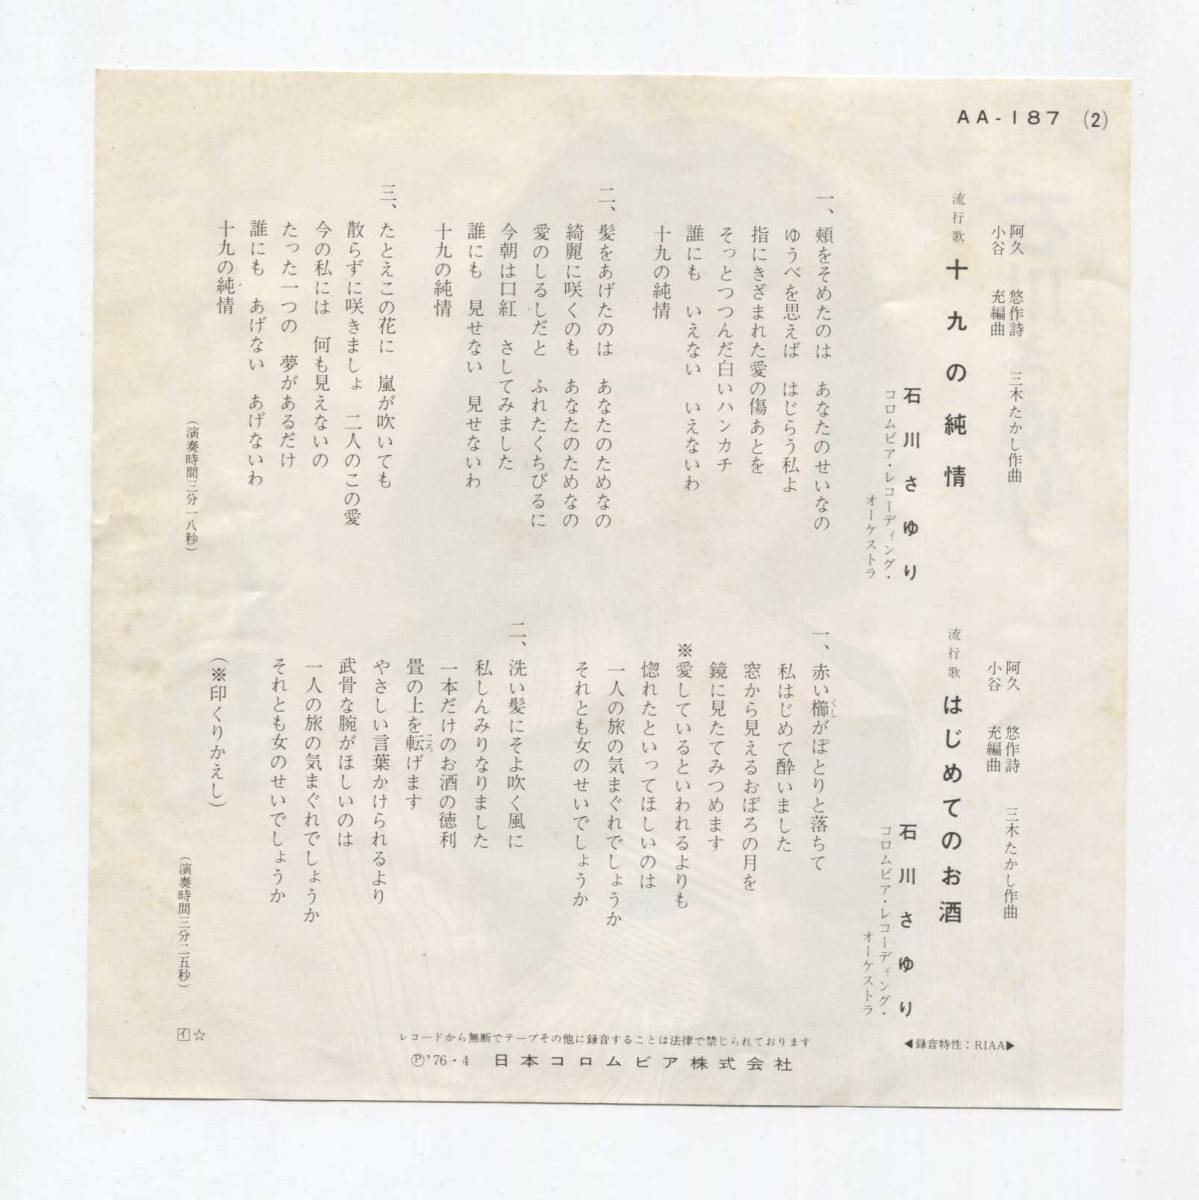 AA-187 (2)
阿久 悠作詩
小谷 充編曲
三木たかし作曲
流行歌 十九の純情
石川さゆり
コロムビア・レコーディング・
オーケストラ
一、頬をそめたのは あなたのせいなの
ゆうべを思えば はじらう私よ
指にきざまれた愛の傷あとを
そっとつつんだ白いハンカチ
誰にも いえない いえないわ
十九の純情
二、髪をあげたのは あなたのためなの
綺麗に咲くのも あなたのためなの
愛のしるしだと ふれたくちびるに
今朝は口紅 さしてみました
誰にも 見せない 見せないわ
十九の純情
三、たとえこの花に 嵐が吹いても
散らずに咲きましょ 二人のこの愛
今の私には 何も見えないの
たった一つの 夢があるだけ
誰にも あげない あげないわ
十九の純情
(演奏時間三分一八秒)
阿久 悠作詩
小谷 充編曲
三木たかし作曲
流行歌 はじめてのお酒
石川さゆり
コロムビア・レコーディング・
オーケストラ
一、赤い櫛がぽとりと落ちて
くし
私はじめて酔いました
窓から見えるおぼろの月を
鏡に見たてみつめます
※愛しているといわれるよりも
惚れたといってほしいのは
一人の旅の気まぐれでしょうか
それとも女のせいでしょうか
二、洗い髪にそよ吹く風に
私しんみりなりました
一本だけのお酒の徳利
畳の上を転げます
ころ
やさしい言葉かけられるより
武骨な腕がほしいのは
一人の旅の気まぐれでしょうか
それとも女のせいでしょうか
(※印くりかえし)
(演奏時間三分二五秒)
イ☆
レコードから無断でテープその他に録音することは法律で禁じられております
Ⓟ'76・4 日本コロムビア株式会社
◀録音特性:RIAA▶